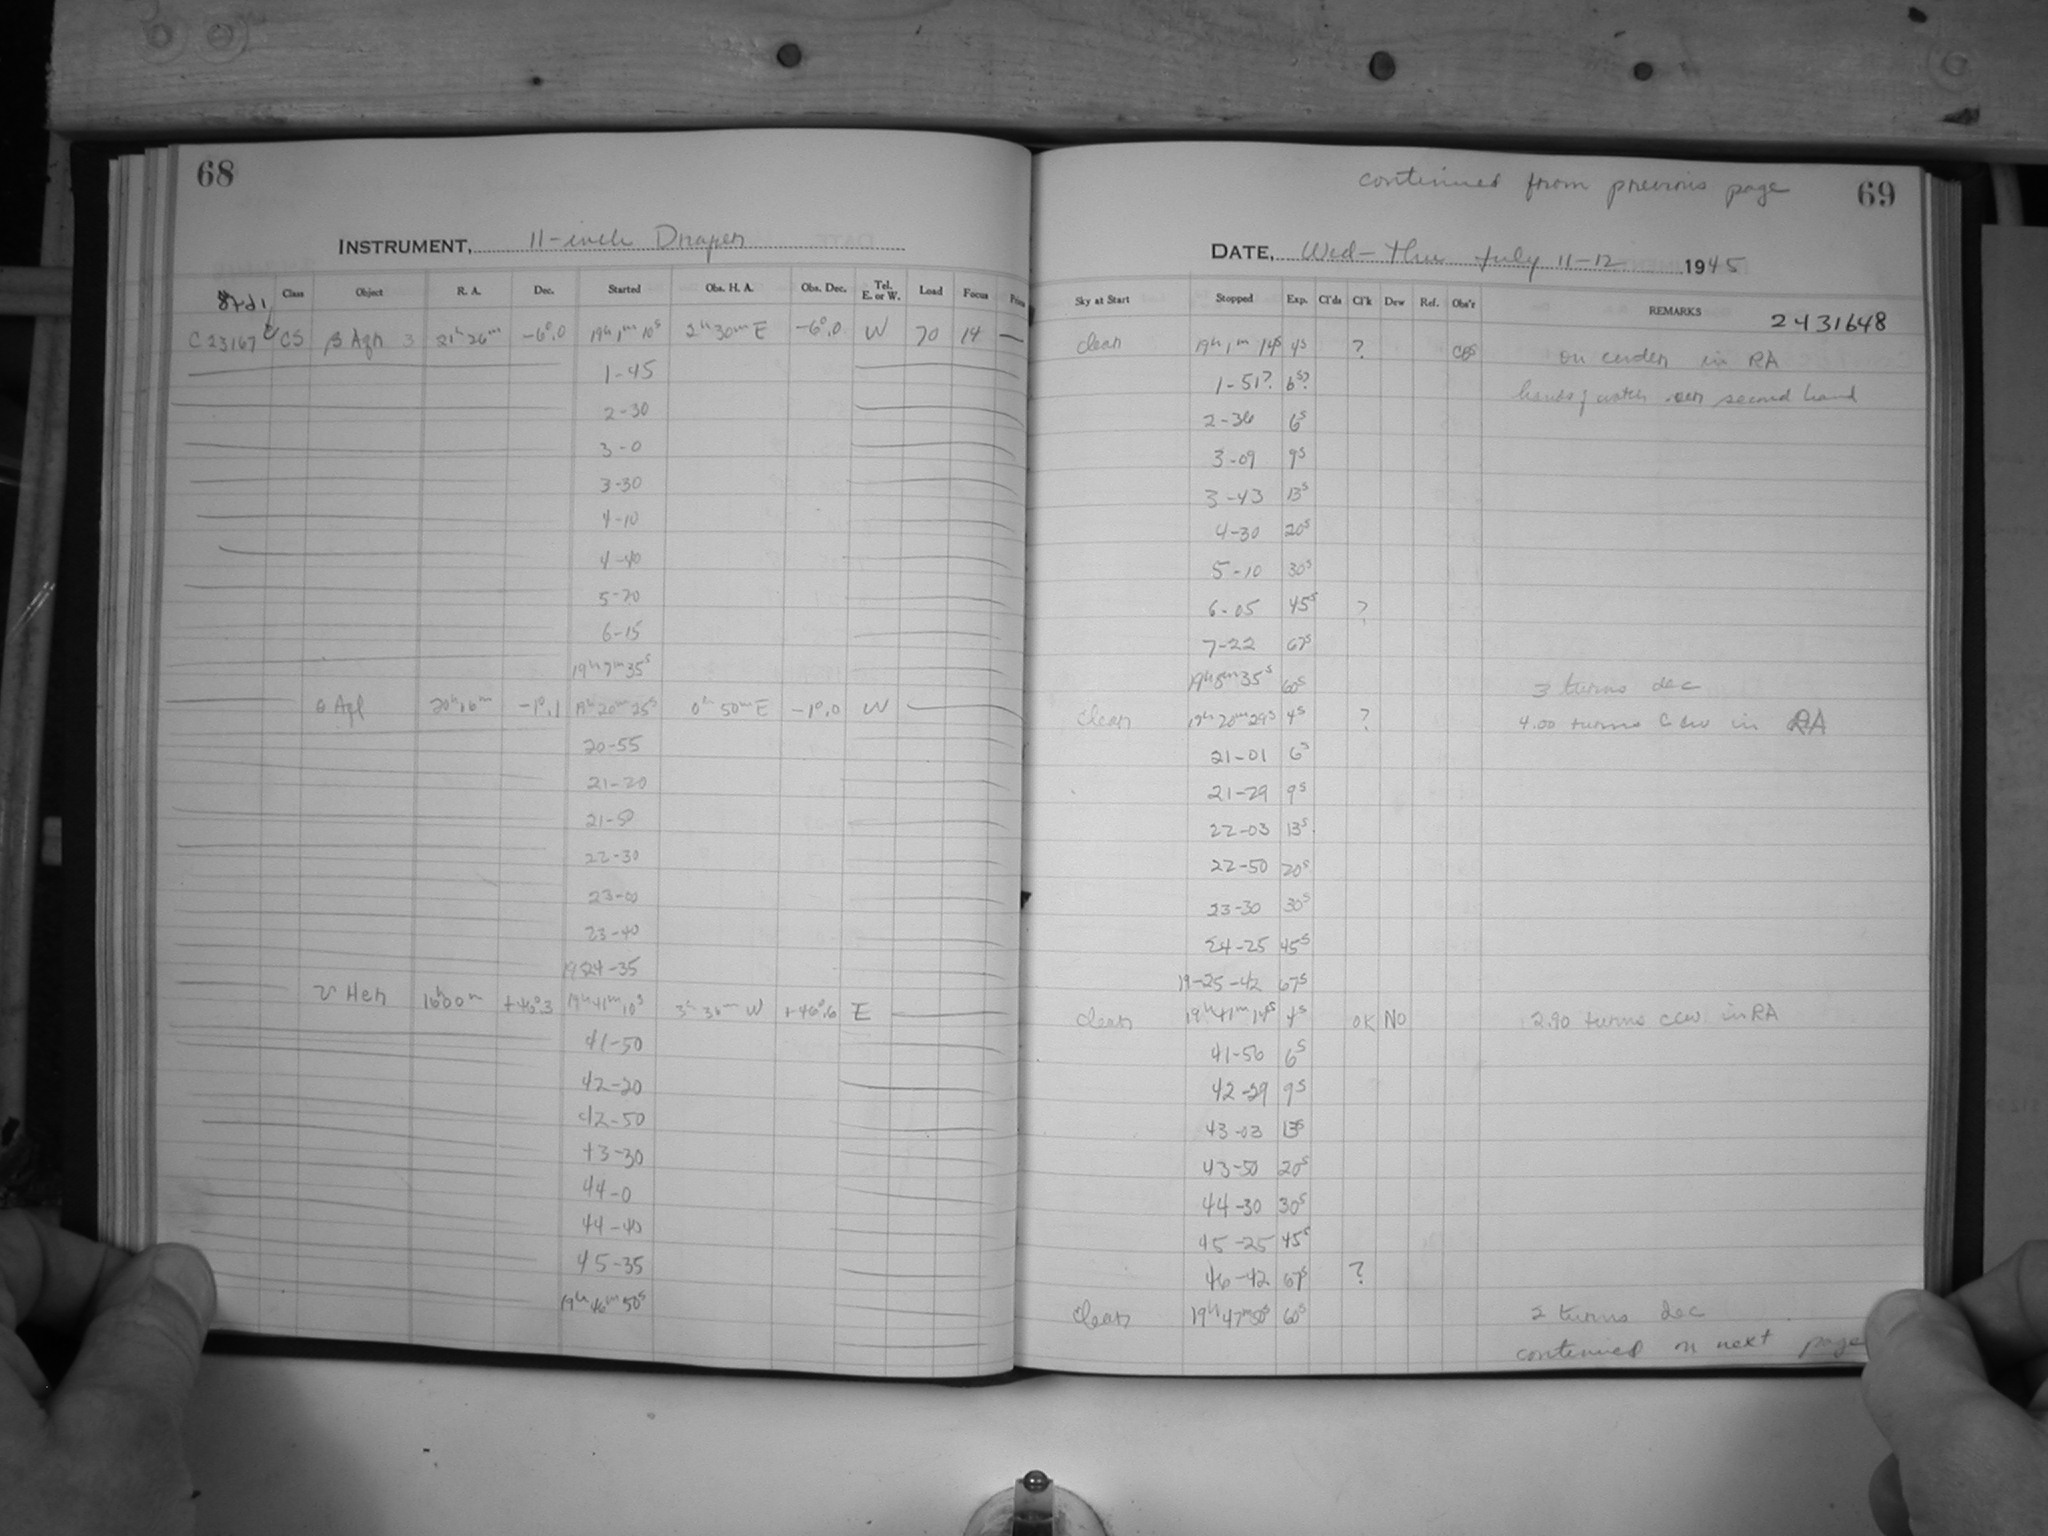 68
INSTRUMENT, 11-inch Draper
Class Object R. A. Dec. Started Obs. H. A. Obs. Dec. Tel. E. or W. Load Focus
C23167 CS β Aqr 3 21h 26m -6°.0 19h 1m 10s 2h 30m E -6°.0 W 70 14 —
1-45
2-30
3-0
3-30
4-10
4-40
5-20
6-15
19h 7m 35s
θ Aql -1°.1 19h 20m 25s 0h 50m E -1°.0 W
20-55
21-20
21-50
22-30
23-00
23-40
19 24-35
υ Her 16h00m +46°.3 19h 41m 10s 3h 30m W +46°.6 E
41-50
42-20
42-50
43-30
44-0
44-40
45-35
19h 46m 50s
continued from previous page 69
DATE, Wed-Thu July 11-12 1945
Sky at Start Stopped Exp. Cl'ds Cl'k Dew Ref. Obs'r REMARKS 2431648
clear 19h 1m 14s 4s ? on center in RA
1-51? 6s? hands of watch second hand
2-36 6s
3-09 9s
3-43 13s
4-30 20s
5-10 30s
6-05 45s ?
7-22 67s
19h 8m 35s 60s 3 turns dec
clear 19h 20m 29s 4s ? 4.00 turns ccw in RA
21-01 6s
21-29 9s
22-03 13s
22-50 20s
23-30 30s
24-25 45s
19-25-42 67s
clear 19h 41m 14s 4s OK NO 2.90 turns ccw in RA
41-56 6s
42-29 9s
43-03 13s
43-50 20s
44-30 30s
45-25 45s
46-42 67s ?
clear 19h 47m 50s 60s 2 turns dec
continued on next page